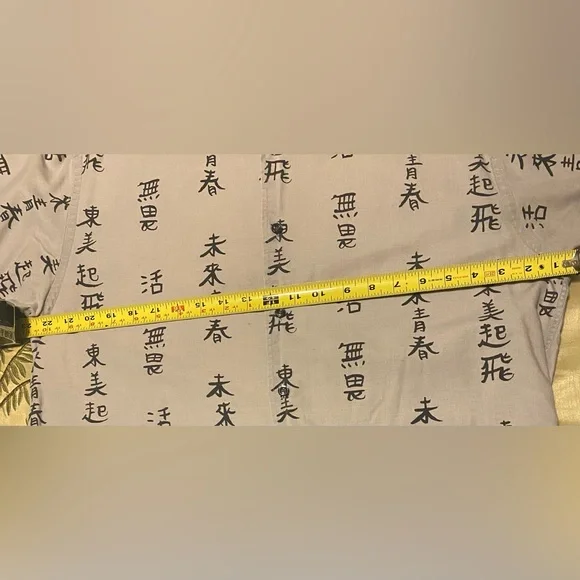 飛
東美起飛
東美起
無畏
活無畏
活
青春
未來青春
未來
飛
東美起飛
東美
活
無畏
活無畏
青春
未來青春
未
美起飛
東美起飛
活
無畏
青春
起飛
22 21 20 19 18 17 16 15 14 13 12 11 10 9 8 7 6 5 4 3 2